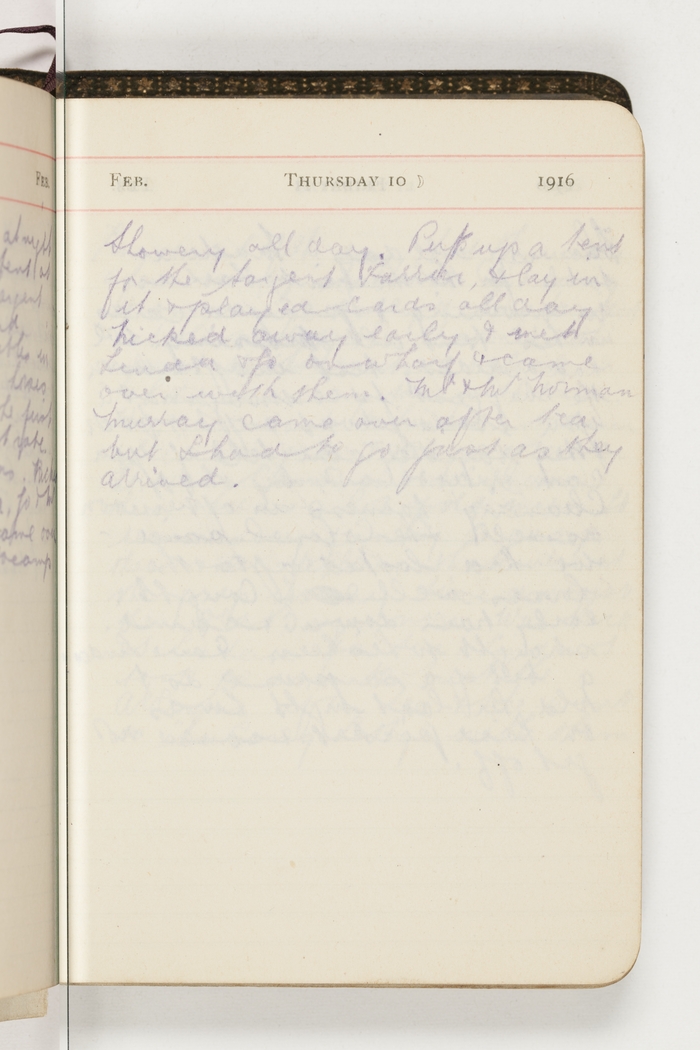 FEB. THURSDAY 10 1916
Showery all day. Put up a tent
for the Sargent Farrier, & lay in
it & played cards all day.
Nicked away early & met
Linda & Jo on wharf & came
over with them. Mr & Mrs Norman
Murray came over after tea
but I had to go just as they
arrived.
FEB.
at night